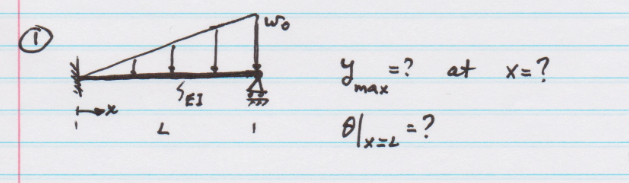 ①
w₀
EI
x
L
y_max = ? at x = ?
θ|ₓ₌L = ?